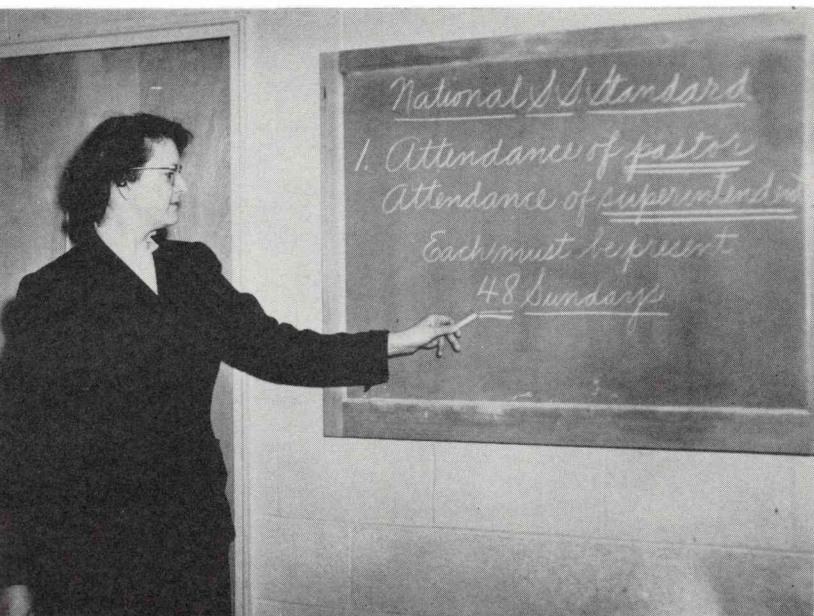 National S.S. Standard
1. Attendance of pastor
Attendance of superintendent
Each must be present
48 Sundays